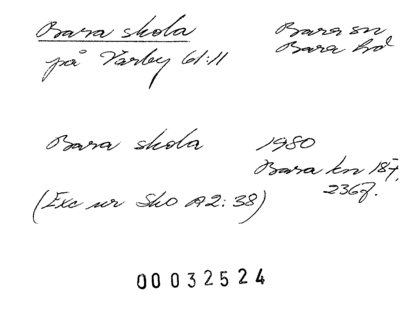 Bara skola Bara sn
på Värby 61:11 Bara hd
Bara skola 1980
Bara kn 187,
236f.
(Exc ur Sko A2:38)
00032524